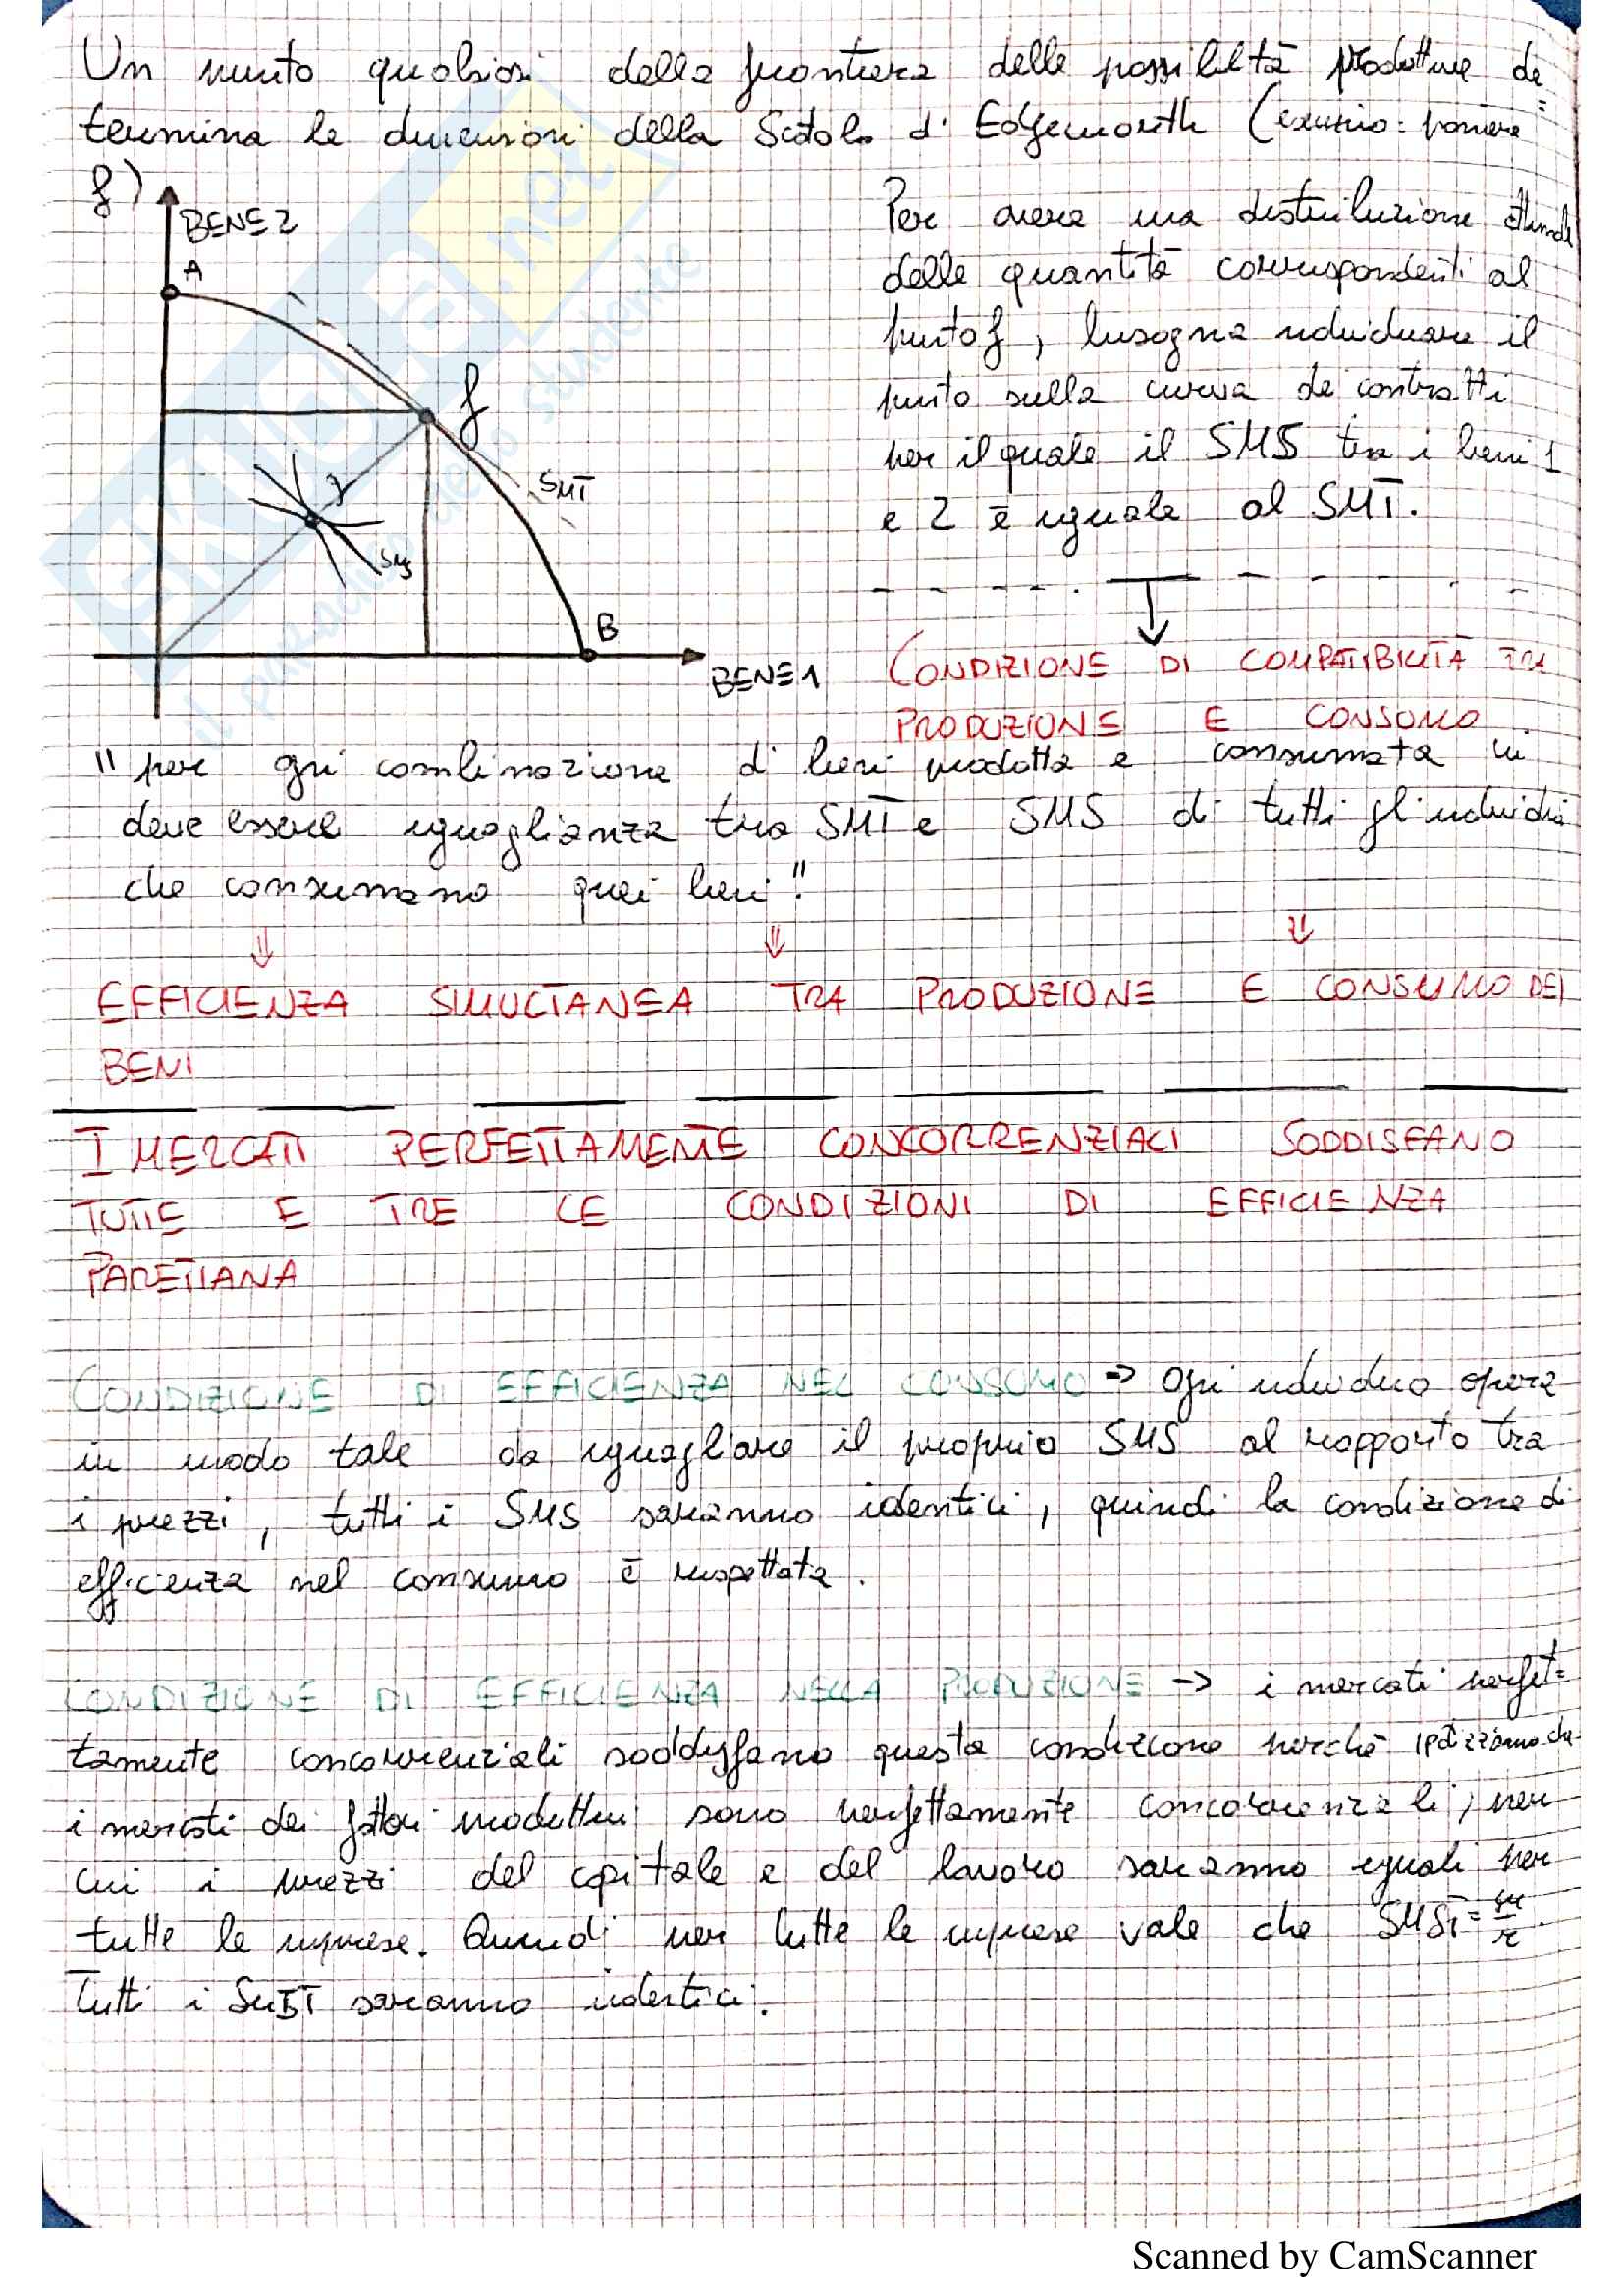 Un punto qualsiasi della frontiera delle possibilità produttive de=
termina le dimensioni della Scatola di Edgeworth (esempio: paniere
f)
BENE 2
A
f
SMT
γ
SMS
B
BENE 1
Per avere una distribuzione ottimale
delle quantità corrispondenti al
punto f, bisogna individuare il
punto sulla curva dei contratti
per il quale il SMS tra i beni 1
e 2 è uguale al SMT.
CONDIZIONE DI COMPATIBILITÀ TRA
PRODUZIONE E CONSUMO
"per ogni combinazione di beni prodotta e consumata vi
deve essere uguaglianza tra SMT e SMS di tutti gli individui
che consumano quei beni"
EFFICIENZA SIMULTANEA TRA PRODUZIONE E CONSUMO DEI
BENI
I MERCATI PERFETTAMENTE CONCORRENZIALI SODDISFANO
TUTTE E TRE LE CONDIZIONI DI EFFICIENZA
PARETIANA
CONDIZIONE DI EFFICIENZA NEL CONSUMO => Ogni individuo opera
in modo tale da uguagliare il proprio SMS al rapporto tra
i prezzi, tutti i SMS saranno identici, quindi la condizione di
efficienza nel consumo è rispettata.
CONDIZIONE DI EFFICIENZA NELLA PRODUZIONE -> i mercati perfet=
tamente concorrenziali soddisfano questa condizione perchè ipotizziamo che
i mercati dei fattori produttivi sono perfettamente concorrenziali, per
cui i prezzi del capitale e del lavoro saranno uguali per
tutte le imprese. Quindi per tutte le imprese vale che SMST = w/r.
Tutti i SMST saranno identici.
SKUOLA.net
il paradiso dello studente
Scanned by CamScanner